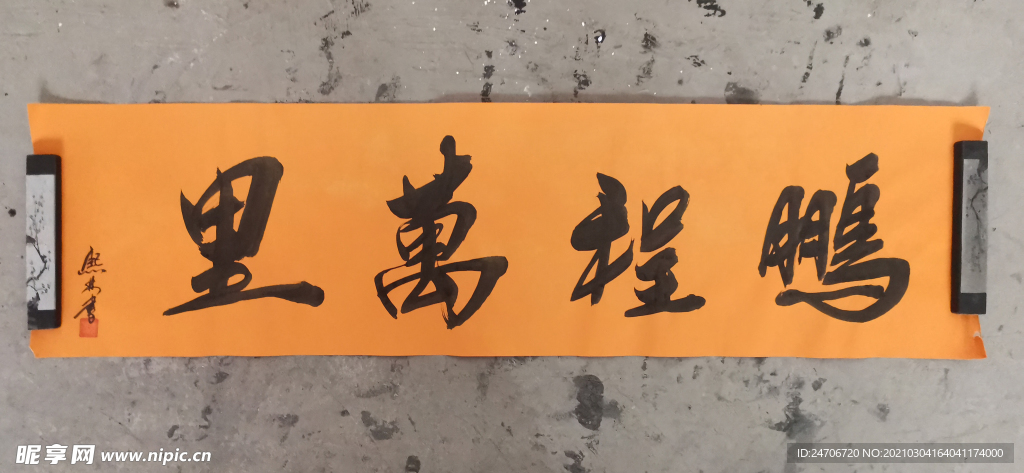 鵬程萬里
昵享网 www.nipic.cn
ID:24706720 NO:20210304164041174000